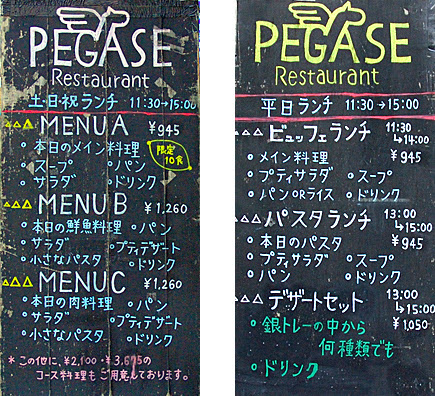 PEGASE
Restaurant
土日祝ランチ 11:30→15:00
MENU A ¥945
限定10食
本日のメイン料理
スープ パン
サラダ ドリンク
MENU B ¥1,260
本日の鮮魚料理 パン
サラダ プティデザート
小さなパスタ ドリンク
MENU C ¥1,260
本日の肉料理 パン
サラダ プティデザート
小さなパスタ ドリンク
*この他に、¥2,100・¥3,675の
コース料理もご用意しております。
PEGASE
Restaurant
平日ランチ 11:30→15:00
ビュッフェランチ 11:30→14:00
メイン料理 ¥945
プティサラダ スープ
パンORライス ドリンク
パスタランチ 13:00→15:00
本日のパスタ ¥945
プティサラダ スープ
パン ドリンク
デザートセット 13:00→15:00
銀トレーの中から ¥1,050
何種類でも
ドリンク